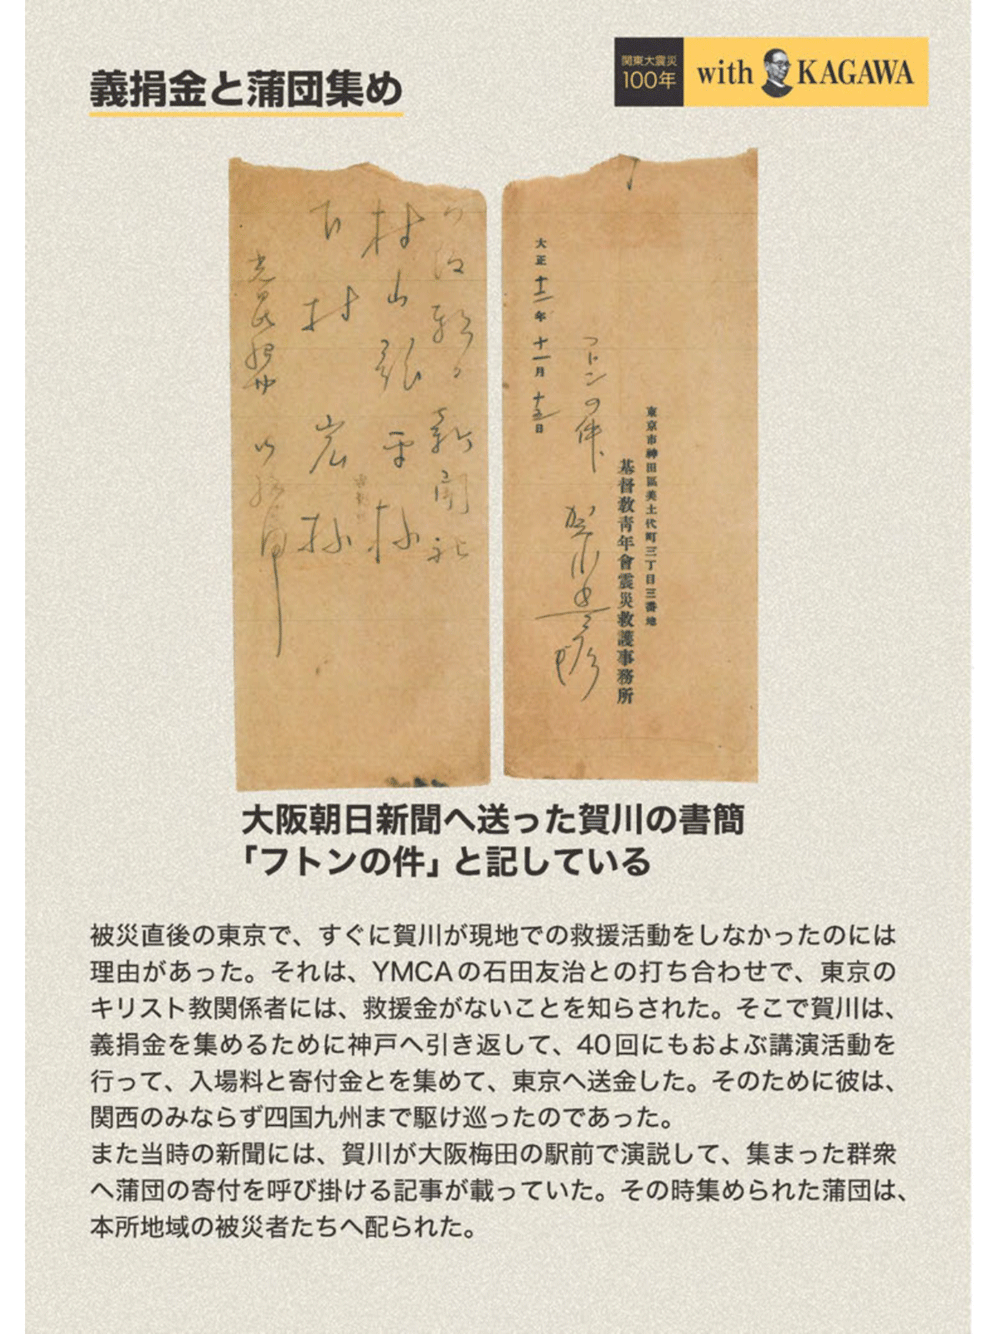 義捐金と蒲団集め
関東大震災
100年
with KAGAWA
大阪朝日新聞社
村山龍平様
下村宏様
大正十二年十一月十五日
フトンの件、
賀川豊彦
東京市神田區美土代町三丁目三番地
基督教青年會震災救護事務所
大阪朝日新聞へ送った賀川の書簡
「フトンの件」と記している
被災直後の東京で、すぐに賀川が現地での救援活動をしなかったのには
理由があった。それは、YMCAの石田友治との打ち合わせで、東京の
キリスト教関係者には、救援金がないことを知らされた。そこで賀川は、
義捐金を集めるために神戸へ引き返して、40回にもおよぶ講演活動を
行って、入場料と寄付金とを集めて、東京へ送金した。そのために彼は、
関西のみならず四国九州まで駆け巡ったのであった。
また当時の新聞には、賀川が大阪梅田の駅前で演説して、集まった群衆
へ蒲団の寄付を呼び掛ける記事が載っていた。その時集められた蒲団は、
本所地域の被災者たちへ配られた。